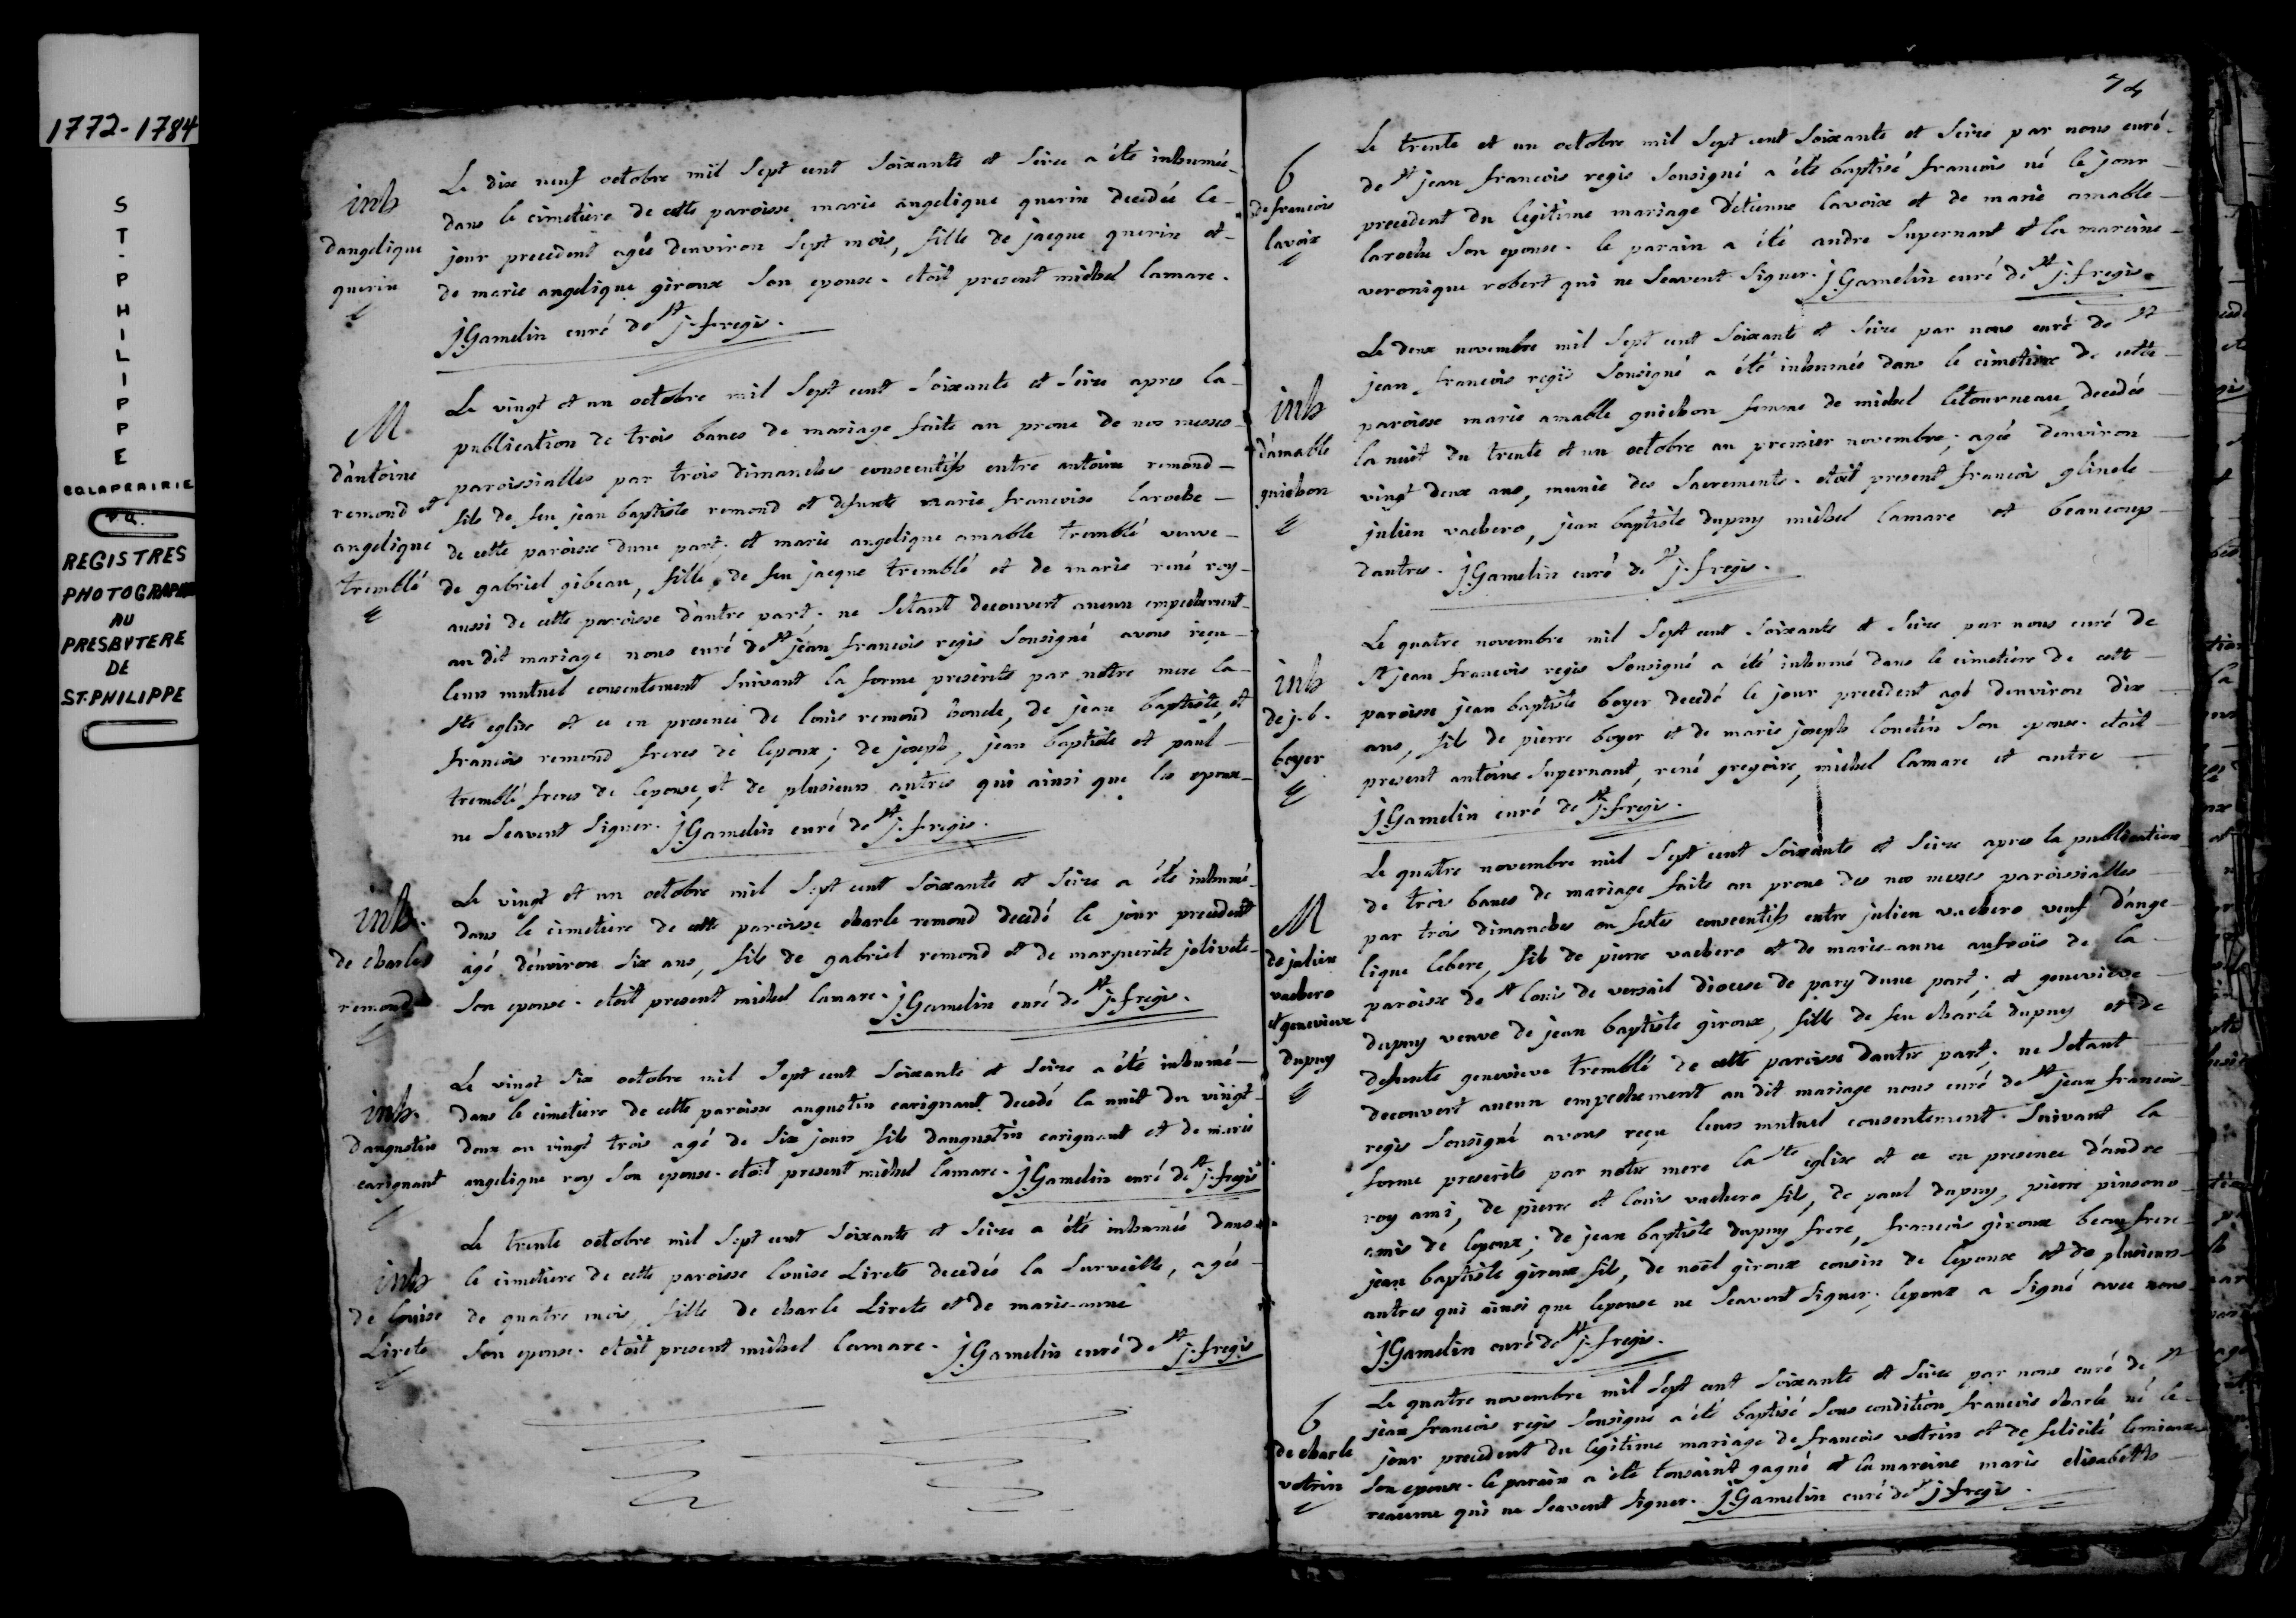 1772-1784
ST-PHILIPPE
CO. LAPRAIRIE
P.Q.
REGISTRES
PHOTOGRAPHIÉS
AU
PRESBYTERE
DE
ST. PHILIPPE
inh
d'angelique
guerin
Le dix neuf octobre mil sept cent soixante et seize a été inhumée
dans le cimetiere de cette paroisse marie angelique guerin decedée le
jour precedent agée denviron sept mois, fille de jacque guerin et
de marie angelique giroux son epouse. etoit present michel lamare.
j. Gamelin curé de st j. f. regis.
M
d'antoine
remond et
angelique
tremblé
Le vingt et un octobre mil sept cent soixante et seize apres la
publication de trois bancs de mariage faite au prone de nos messes
paroissialles par trois dimanches consecutifs entre antoine remond
fils de feu jean baptiste remond et defunte marie francoise laroche
de cette paroisse dune part; et marie angelique amable tremblé veuve
de gabriel gibeau, fille de feu jacque tremblé et de marie rené roy
aussi de cette paroisse d'autre part; ne setant decouvert aucun empechement
au dit mariage nous curé de st jean francois regis sousigné avons reçu
leur mutuel consentement suivant la forme prescrite par notre mere la
ste eglise et ce en presence de louis remond boucle, de jean baptiste, et
francois remond freres de lepoux; de joseph, jean baptiste et paul
tremblé freres de lepouse, et de plusieurs autres qui ainsi que les epoux
ne scavent signer. j. Gamelin curé de st j. f. regis.
inh.
de charles
remond
Le vingt et un octobre mil sept cent soixante et seize a été inhumé
dans le cimetiere de cette paroisse charle remond decedé le jour precedent
agé d'environ six ans, fils de gabriel remond et de marguerite jolivete
son epouse. etoit present michel lamare. j. Gamelin curé de st j. f. regis.
inh.
d'augustin
carignant
Le vingt six octobre mil sept cent soixante et seize a été inhumé
dans le cimetiere de cette paroisse augustin carignant decedé la nuit du vingt
deux au vingt trois agé de six jours fils daugustin carignant et de marie
angelique roy son epouse. etoit present michel lamare. j. Gamelin curé de st j. f. regis
inh
de louise
Lirete
Le trente octobre mil sept cent soixante et seize a été inhumée dans
le cimetiere de cette paroisse louise Lirete decedée la surveille, agée
de quatre mois, fille de charle Lirete et de marie-anne
son epouse. etoit present michel lamare. j. Gamelin curé de st j. f. regis
74
b
de francois
lavoix
Le trente et un octobre mil sept cent soixante et seize par nous curé
de st jean francois regis sousigné a été baptisé francois né le jour
precedent du legitime mariage d'etienne lavoix et de marie amable
laroche son epouse. le parain a été andre supernant et la maraine
veronique robert qui ne scavent signer. j. Gamelin curé de st j. f. regis
inh
d'amable
guichon
Le deux novembre mil sept cent soixante et seize par nous curé de st
jean francois regis sousigné a été inhumée dans le cimetiere de cette
paroisse marie amable guichon femme de michel letourneau, decedée
la nuit du trente et un octobre au premier novembre; agée denviron
vingt deux ans, munie des sacrements. etoit present francois glinele
julien vachero, jean baptiste dupuy michel lamare et beaucoup
dautres. j. Gamelin curé de st j. f. regis.
inh
de j. b.
boyer
Le quatre novembre mil sept cent soixante et seize par nous curé de
st jean francois regis sousigné a été inhumé dans le cimetiere de cette
paroisse jean baptiste boyer decedé le jour precedent agé denviron dix
ans, fils de pierre boyer et de marie joseph lonctin son epouse. etoit
present antoine supernant, rené gregoire, michel lamare et autre
j. Gamelin curé de st j. f. regis.
M
de julien
vachero
et genevieve
dupuy
Le quatre novembre mil sept cent soixante et seize apres la publication
de trois bancs de mariage faite au prone des nos messes paroissialles
par trois dimanches ou festes consecutifs entre julien vachero veuf d'ange
lique lebere, fils de pierre vachero et de marie-anne aufrois de la
paroisse de st louis de versail diocese de pary dune part; et genevieve
dupuy veuve de jean baptiste giroux, fille de feu charle dupuy et de
defunte genevieve tremblé de cette paroisse dautre part; ne setant
decouvert aucun empechement au dit mariage nous curé de st jean francois
regis sousigné avons reçu leurs mutuel consentement suivant la
forme prescrite par notre mere la ste eglise et ce en presence d'andre
roy ami, de pierre et louis vachero fils, de paul dupuy, pierre pinsono
amis de lepoux; de jean baptiste dupuy frere, francois giroux beaufrere
jean baptiste giroux fils, de noël giroux cousin de lepouse et de plusieurs
autres qui ainsi que lepouse ne scavent signer; lepoux a signé avec nous
j. Gamelin curé de st j. f. regis.
b
de charle
votrin
Le quatre novembre mil sept cent soixante et seize par nous curé de st
jean francois regis sousigné a été baptisé sous condition francois charle né le
jour precedent du legitime mariage de francois votrin et de felicité lemieux
son epouse. le parain a été tousaint gagné et la maraine marie elisabeth
reaume qui ne scavent signer. j. Gamelin curé de st j. f. regis.